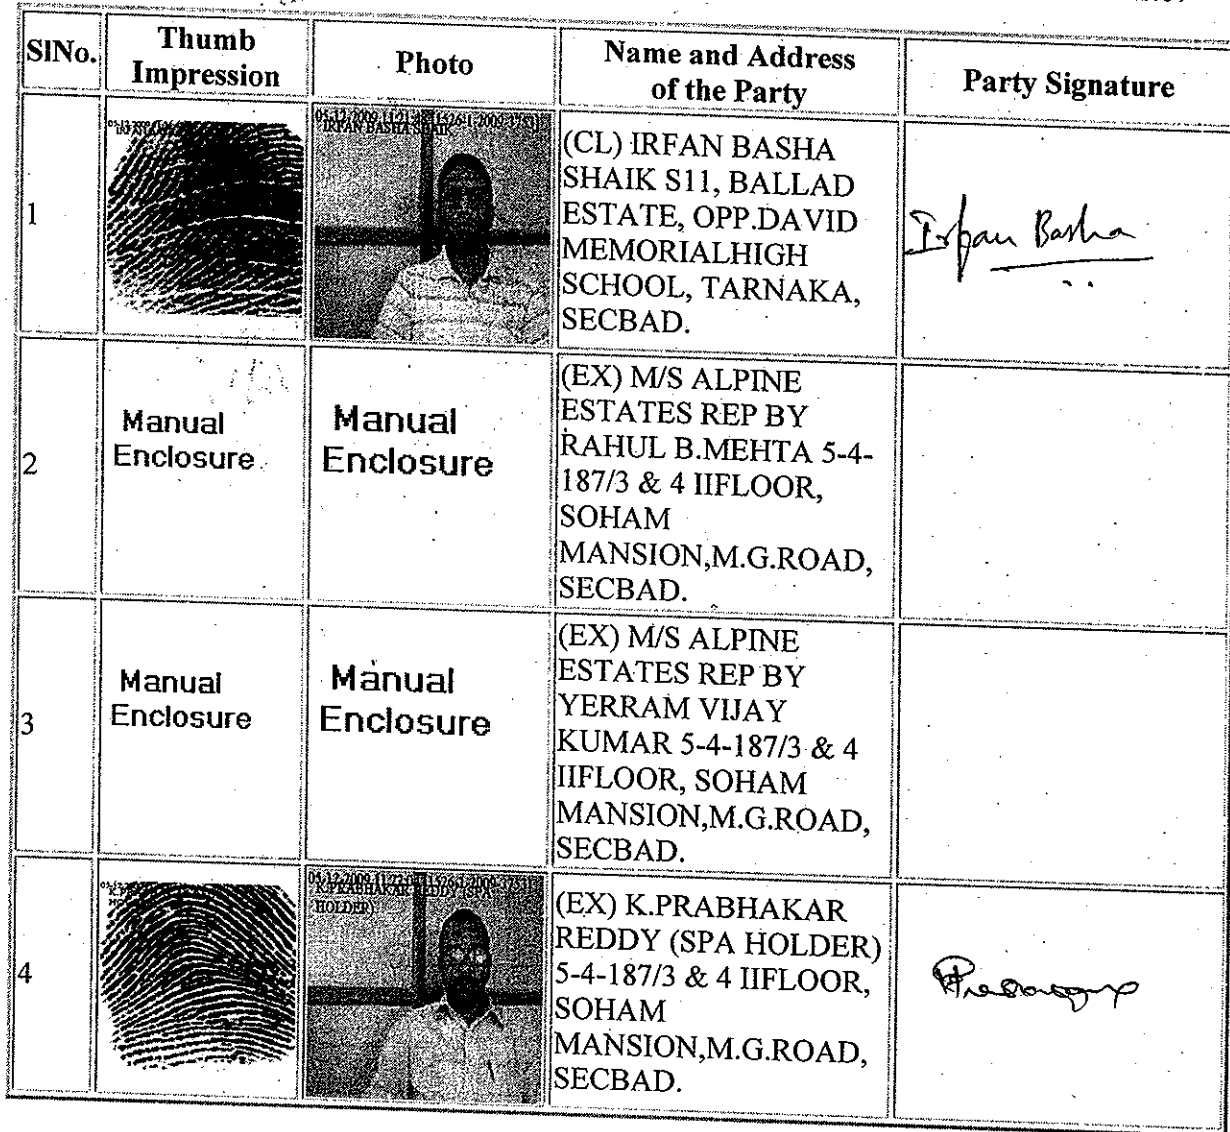 SlNo.
Thumb
Impression
Photo
Name and Address
of the Party
Party Signature
1
IRFAN BASHA SHAIK
(CL) IRFAN BASHA
SHAIK S11, BALLAD
ESTATE, OPP.DAVID
MEMORIALHIGH
SCHOOL, TARNAKA,
SECBAD.
Irfan Basha
2
Manual
Enclosure
Manual
Enclosure
(EX) M/S ALPINE
ESTATES REP BY
RAHUL B.MEHTA 5-4-
187/3 & 4 IIFLOOR,
SOHAM
MANSION,M.G.ROAD,
SECBAD.
3
Manual
Enclosure
Manual
Enclosure
(EX) M/S ALPINE
ESTATES REP BY
YERRAM VIJAY
KUMAR 5-4-187/3 & 4
IIFLOOR, SOHAM
MANSION,M.G.ROAD,
SECBAD.
4
K.PRABHAKAR REDDY (SPA
HOLDER)
(EX) K.PRABHAKAR
REDDY (SPA HOLDER)
5-4-187/3 & 4 IIFLOOR,
SOHAM
MANSION,M.G.ROAD,
SECBAD.